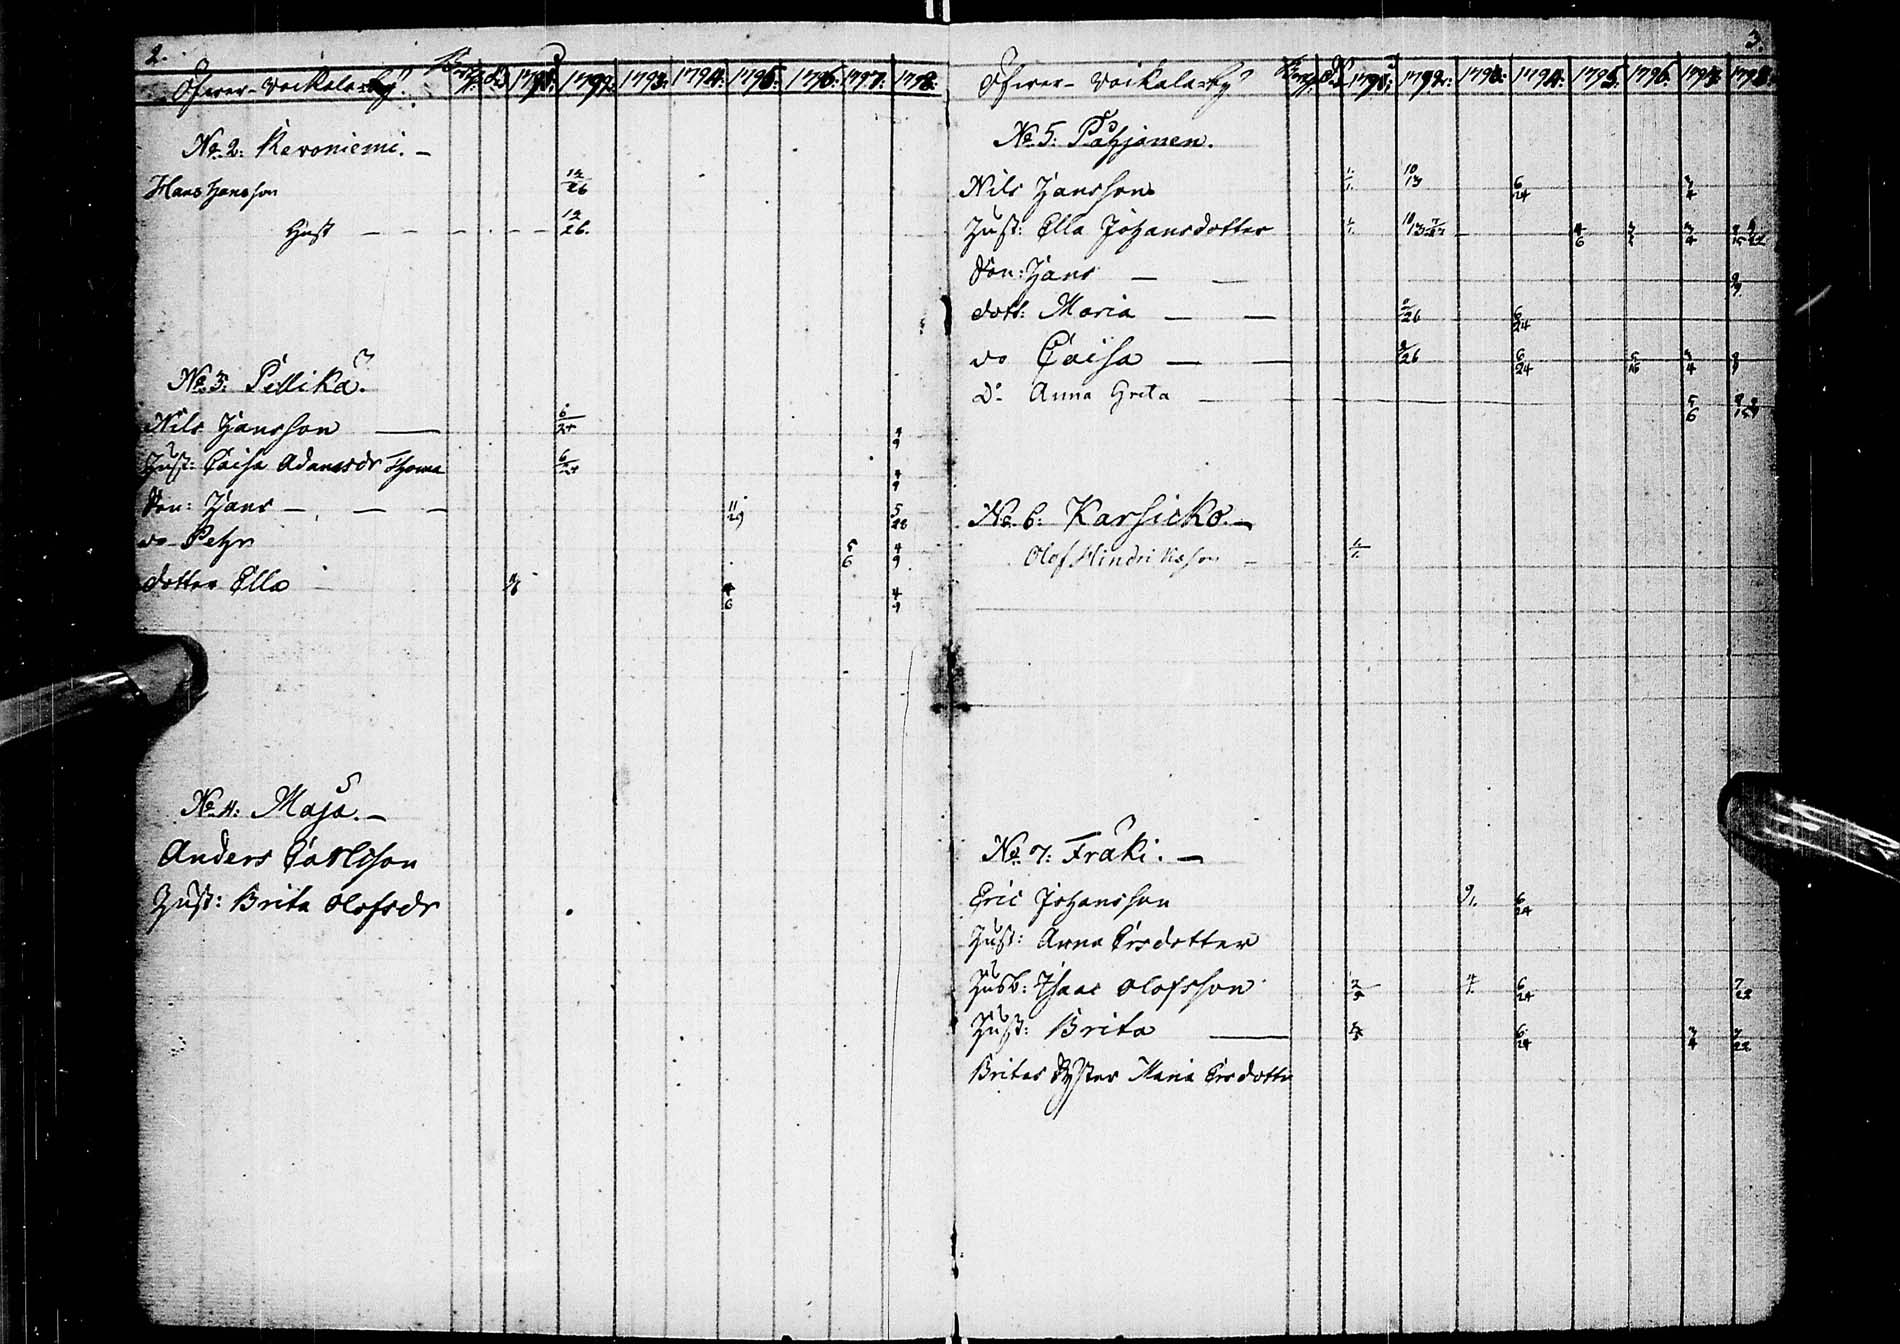 2.
Öfwer-Voikala-by 1791. 1792. 1793. 1794. 1795. 1796. 1797. 1798.
No. 2: Kevoniemi. –
Hans Hansson 12/26
Hust – – – – – – 12/26.
No. 3: Pillika.
Nils Hansson — 6/24 4/9
Hust: Caisa Adamsdr 6/24 4/9
Son: Hans – – – 11/29 5/28
do Pehr 5/6 4/9
dotter Ella 4/6 4/9
No. 4: Maja. –
Anders Carlsson
Hust: Brita Olofsdr
3.
Öfwer-Voikala-by 1791. 1792. 1793. 1794. 1795. 1796. 1797. 1798.
No. 5: Pohjonen.
Nils Hansson 1/1. 10/13 6/24 3/4
Hust: Ella Johansdotter 1/1. 10/13 4/6 3/4
Son: Hans — —
dott: Maria — — 6/24
do Caisa — — 6/24 3/4
Do Anna Greta 5/6
No. 6: Karsicko. –
Olof Hindriksson –
No. 7: Fraki. –
Eric Johansson 6/24
Hust: Anna Ersdotter
Husb: Isaac Olofsson 6/24 7/22
Hust: Brita — 6/24 3/4 7/22
Britas Syster Maria Ersdottr